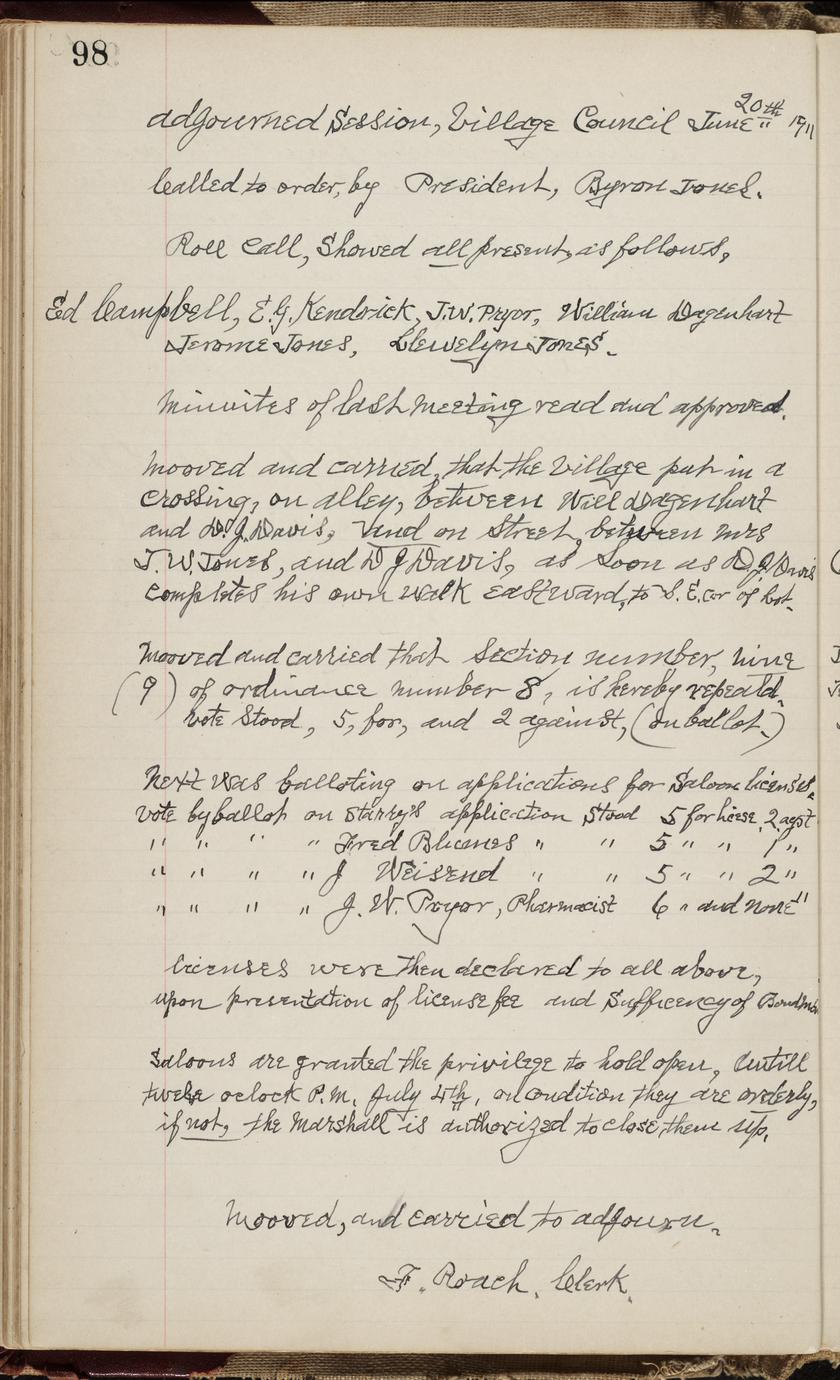 98
adjourned Session, Village Council June 20th 1911
Called to order, by President, Byron Jones.
Roll Call, Showed all present, as follows,
Ed Campbell, E.G. Kendrick, J.W. Pryor, William Dagenhart
Jerome Jones, Llewelyn Jones.
Minuites of last meeting read and approved.
Mooved and carried, that the Village put in a
crossing, on alley, between Will Dagenhart
and D.J. Davis, and on Street, between Mrs
J.W. Jones, and D J Davis, as soon as D.J. Davis
completes his own walk eastward, to S.E. cor of lot.
Mooved and carried that Section number, nine
(9) of ordinance number 8, is hereby repeald,
vote stood, 5, for, and 2 against, (on ballot.)
Next was balloting on applications for Saloon licenses.
vote by ballot on Starry's application Stood 5 for licese, 2 agst
" " " " Fred Blumes " " 5 " " 1 "
" " " " J Weisend " " 5 " " 2 "
" " " " J. W. Pryor, Pharmacist 6 " and none "
licenses were then declared to all above,
upon presentation of license fee and Sufficency of
Saloons are granted the privilege to hold open, Untill
twelve oclock P.M. July 4th, on condition they are orderly,
if not, the Marshall is authorized to close them up.
Mooved, and carried to adjourn.
F. Roach. Clerk.